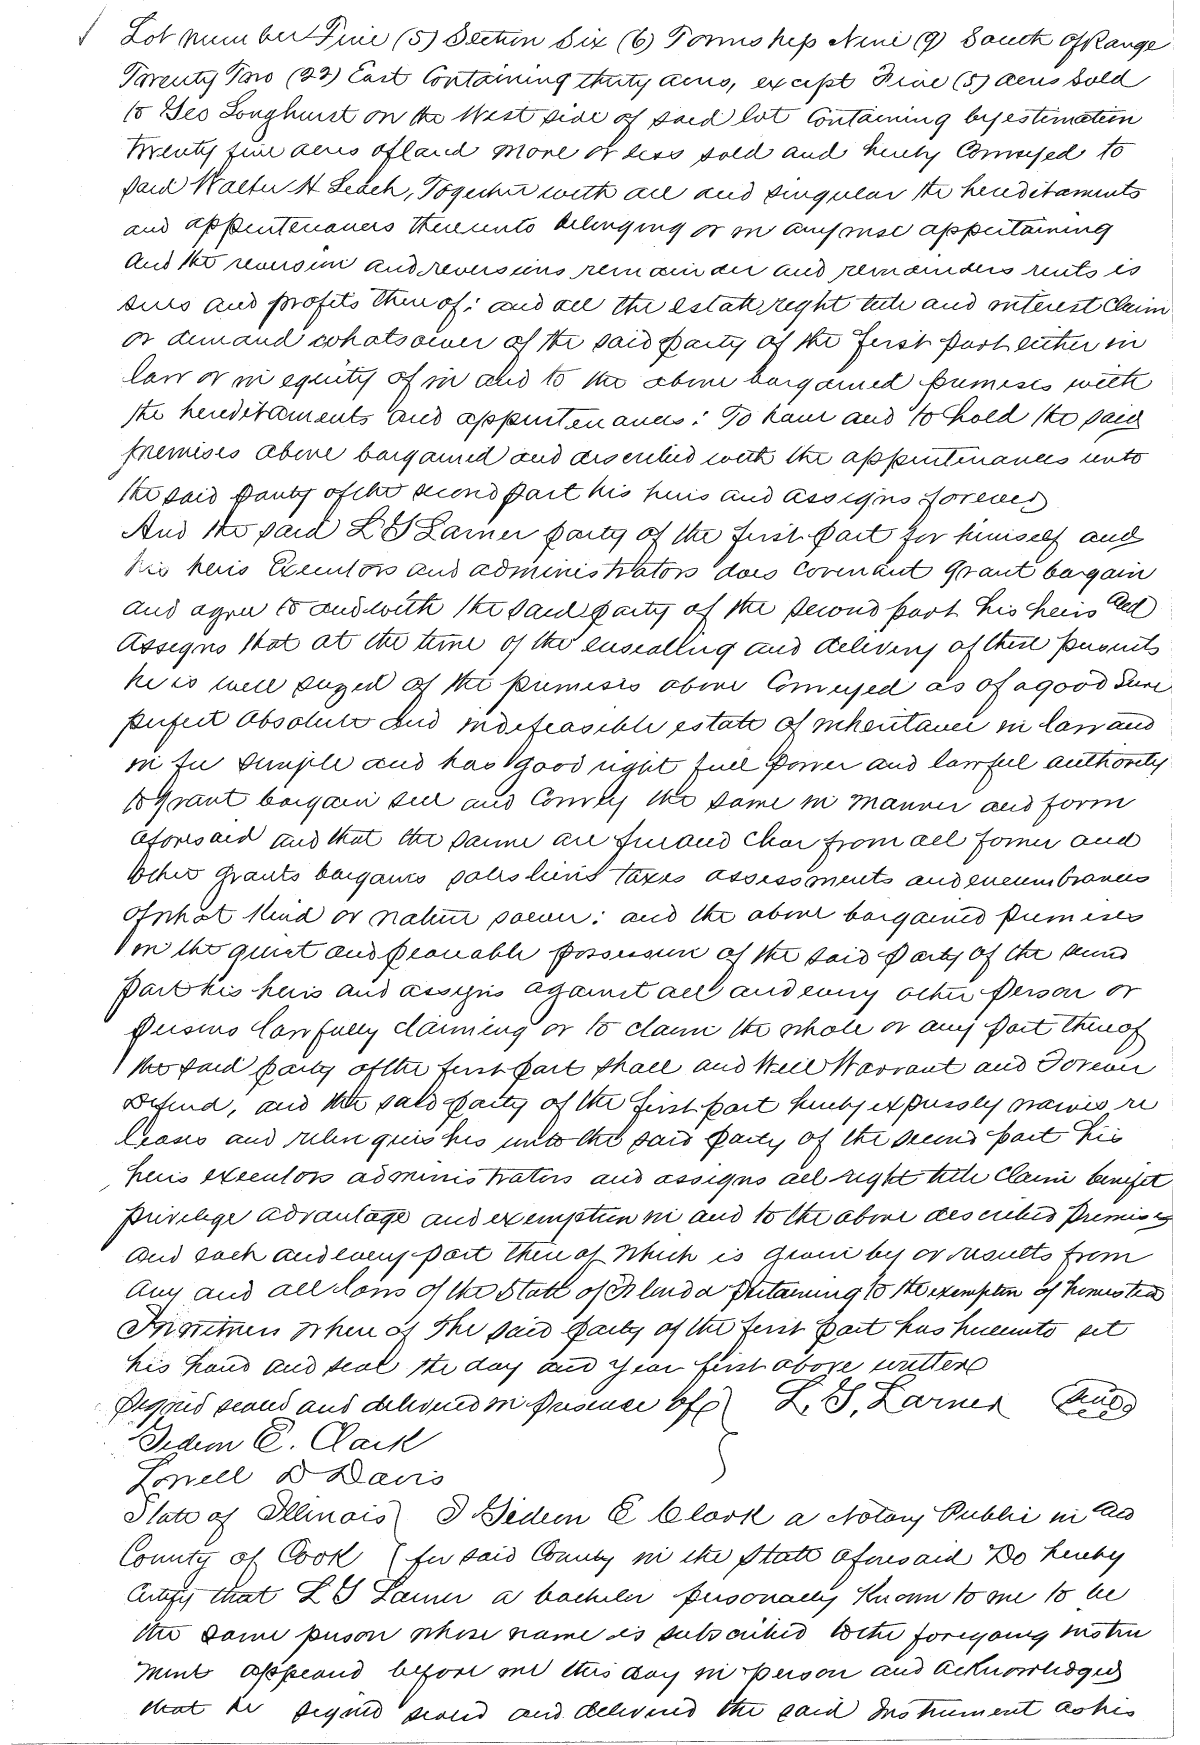 Lot number Five (5) Section Six (6) Township Nine (9) South of Range
Twenty Two (22) East Containing thirty acres, except Five (5) acres Sold
to Geo Longhurst on the West side of said lot Containing by estimation
twenty five acres of land more or less sold and hereby Conveyed to
said Walter H Leach, Together with all and singular the hereditaments
and appurtenances thereunto belonging or in anywise appertaining
And the reversion and reversions remainder and remainders rents is
sues and profits thereof: and all the estate right title and interest Claim
or demand whatsoever of the said party of the first part either in
law or in equity of in and to the above bargained premises with
the hereditaments and appurtenances: To have and to hold the said
premises above bargained and described with the appurtenances unto
the said party of the second part his heirs and assigns forever
And the said L G Larner party of the first part for himself and
his heirs Executors and administrators does Covenant Grant bargain
and agree to and with the said party of the second part his heirs and
Assigns that at the time of the ensealing and delivery of these presents
he is well seized of the premises above Conveyed as of a good Sure
perfect Absolute and indefeasible estate of inheritance in law and
in fee simple and has good right full power and lawful authority
to grant bargain sell and Convey the same in manner and form
aforesaid and that the same are free and Clear from all former and
other Grants bargains sales liens taxes assessments and encumbrances
of what Kind or nature soever: and the above bargained premises
in the quiet and peaceable possession of the said party of the second
part his heirs and assigns against all and every other person or
persons lawfully claiming or to claim the whole or any part thereof
the said party of the first part shall and Will Warrant and Forever
Defend, and the said party of the first part hereby expressly waives, re
leases and relinquishes unto the said party of the second part his
heirs executors administrators and assigns all right title Claim benefit
privilege advantage and exemption in and to the above described Premises
and each and every part thereof which is given by or results from
Any and all laws of the State of Florida pertaining to the exemption of homestead
In witness where of The said party of the first part has hereunto set
his hand and seal the day and year first above written
Signed sealed and delivered in presence of } L. G. Larner (Seal)
Gideon E. Clark
Lowell D Davis
State of Illinois } I Gideon E Clark a Notary Public in and
County of Cook { for said County in the State aforesaid Do hereby
Certify that L G Larner a bachelor personally Known to me to be
the same person whose name is subscribed to the foregoing instru
ment appeared before me this day in person and Acknowledged
that he signed sealed and delivered the said Instrument as his